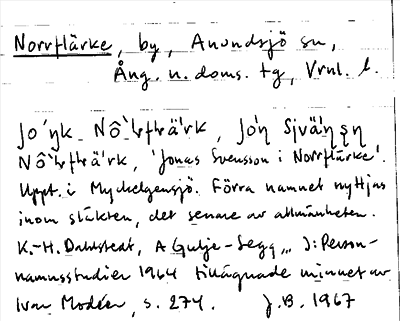 Norrflärke, by, Anundsjö sn,
Ång. n. doms. tg, Vrnl. l.
Jo´ŋk Nô`ɬfɬä´rk, Jo´n Sjvä´nsn
Nô`ɬfɬä´rk, 'Jonas Svensson i Norrflärke'.
Uppt. i Myckelgensjö. Förra namnet nyttjas
inom släkten, det senare av allmänheten.
K.-H. Dahlstedt, A Gulje-Segg... I: Person-
namnsstudier 1964 tillägnade minnet av
Ivar Modéer, s. 274. J.B. 1967